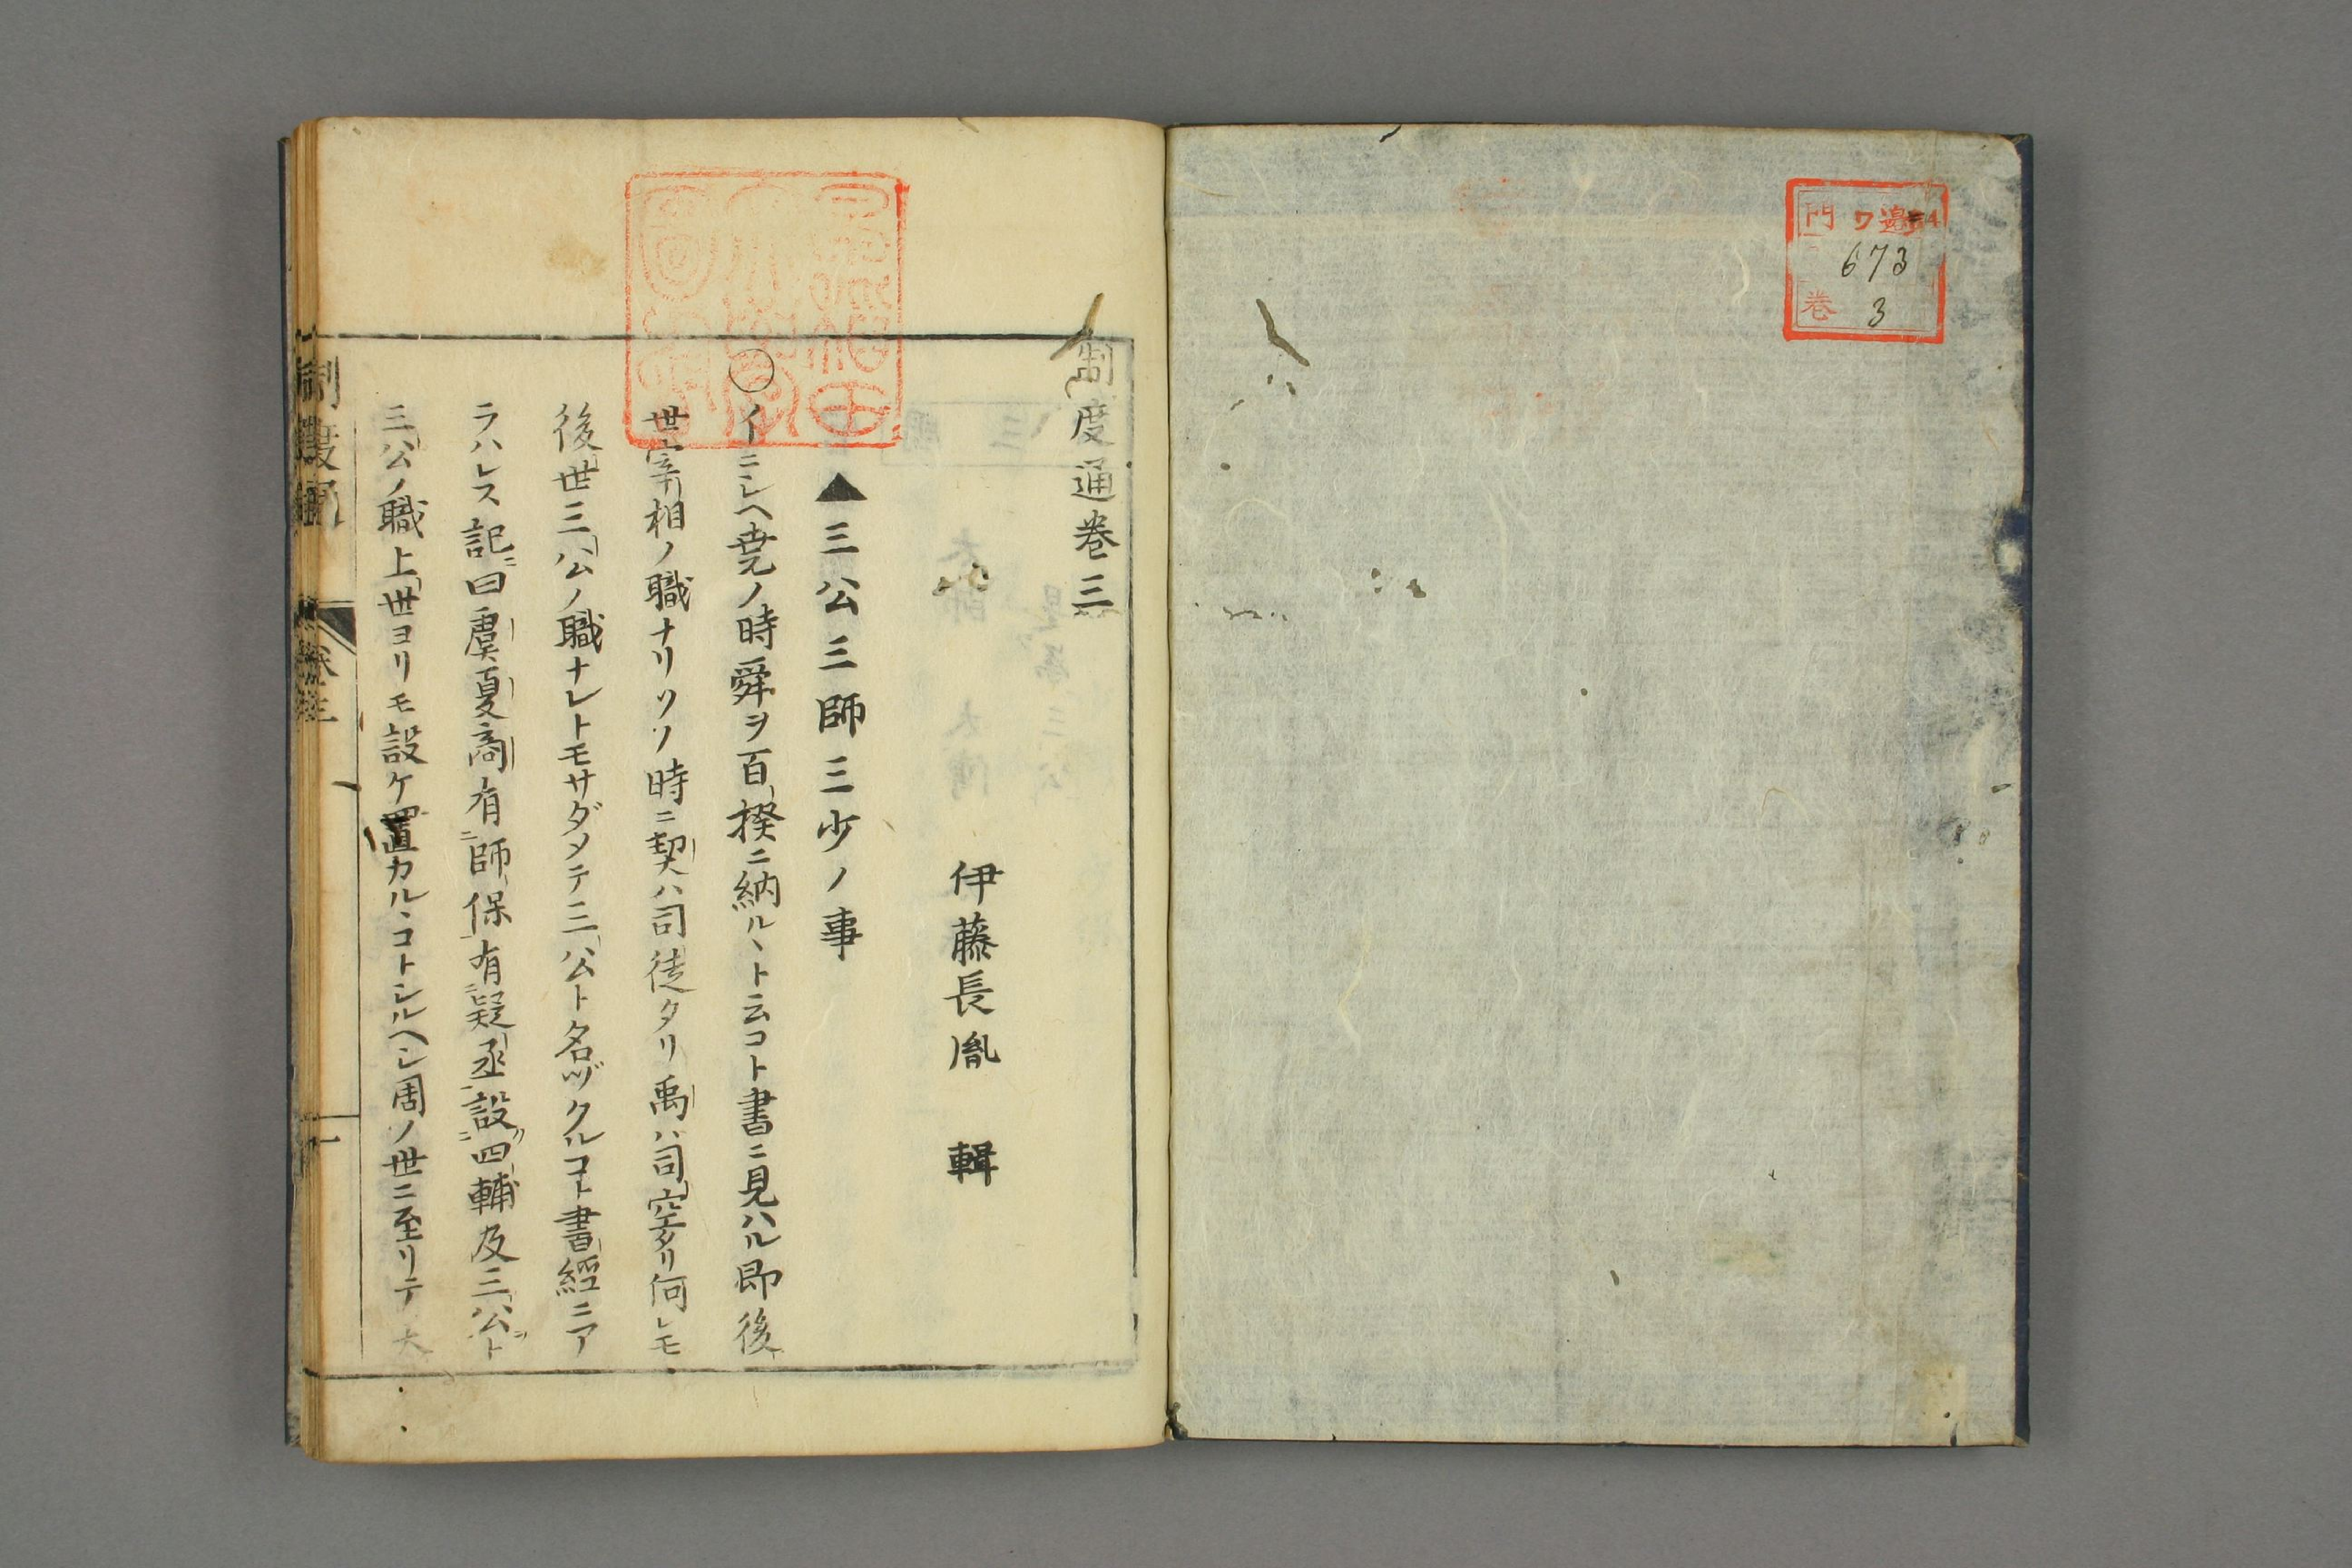 門 ワ
673
巻 3
制度通巻三
伊藤長胤 輯
▲三公三師三少ノ事
○イニシヘ堯ノ時舜ヲ百揆ニ納ルヽト云コト書ニ見ハル即後
世宰相ノ職ナリソノ時ニ契ハ司徒タリ禹ハ司空タリ何レモ
後世三公ノ職ナレトモサダメテ三公ト名ヅクルコト書經ニア
ラハレス記ニ曰虞夏商有師保有疑丞設四輔及三公ト
三公ノ職上世ヨリモ設ケ置カルヽコトシルヘシ周ノ世ニ至リテ大
制度通
卷三
一